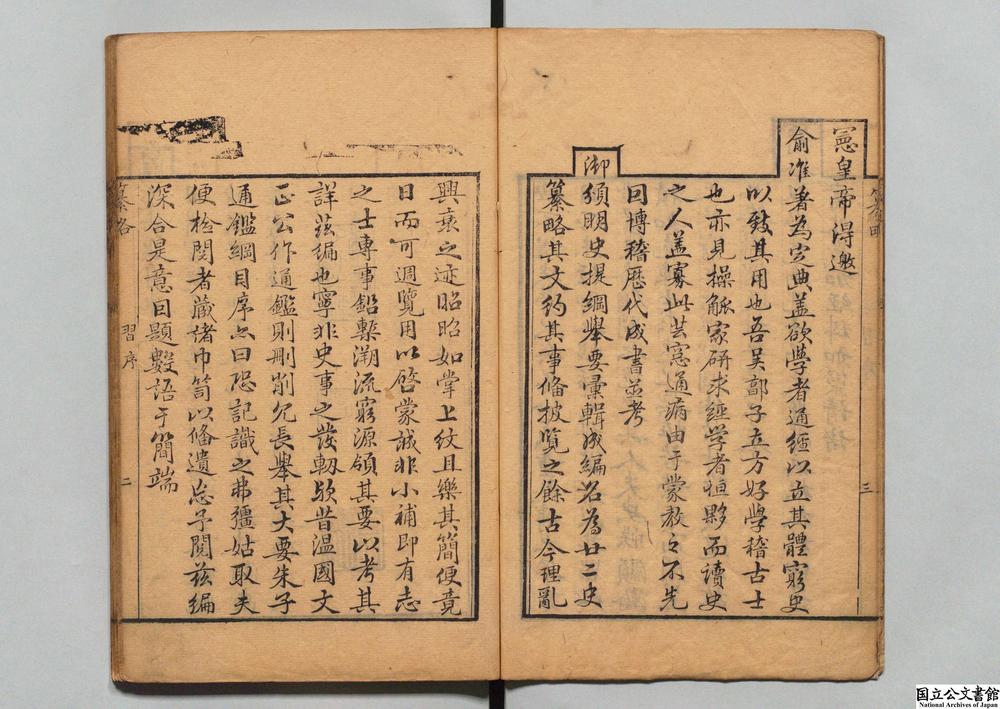 憲皇帝得邀
俞准著為定典盖欲學者通經以立其體窮史
以致其用也吾吴郭子立方好學稽古士
也亦見操觚家研求經學者恒夥而讀史
之人盖寡此芸窓通病由于蒙教之不先
曰博稽歴代成書並考
御
頒明史提綱舉要彙輯成編名為廿二史
纂略其文約其事俻披覧之餘古今理亂
三
興衰之迹昭昭如掌上紋且樂其簡便竟
日而可週覧用以啓蒙誠非小補即有志
之士專事鉛槧溯流窮源領其要以考其
詳兹編也寧非史事之發軔歟昔温國文
正公作通鑑則刪削冗長舉其大要朱子
通鑑綱目序亦曰恐記識之弗彊姑取夫
便檢閱者蔵諸巾笥以俻遺忘予閱兹編
深合是意曰題數語于簡端
纂略
習序
二
国立公文書館
National Archives of Japan